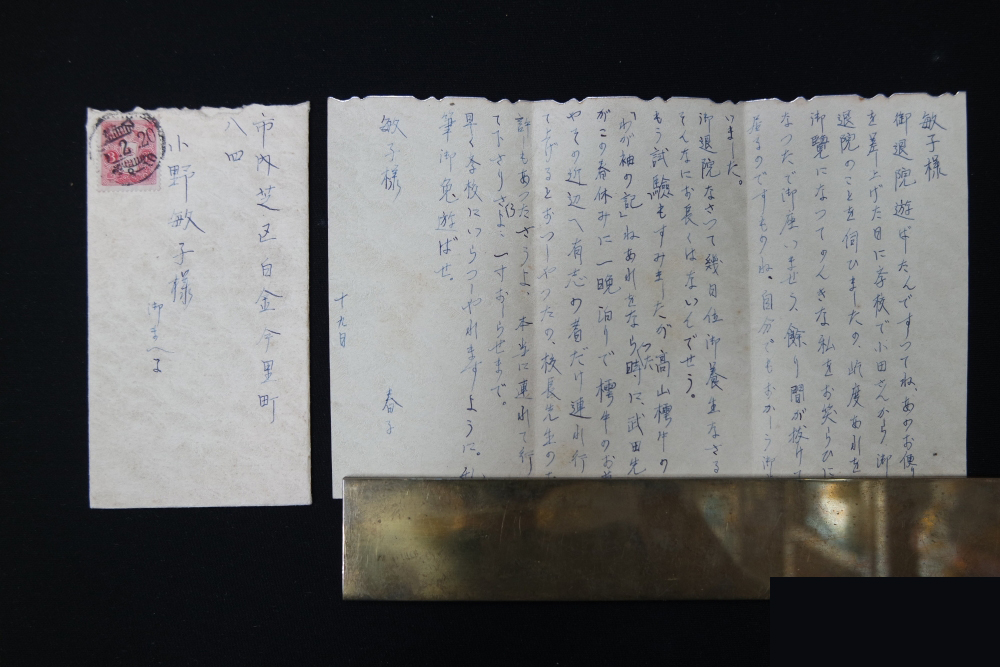 市内芝区白金今里町
八四
小野敏子様
御まへに
敏子様
御退院遊ばしたんですつてね、あのお便り
を差上げた日に学校で小田さんから御
退院のことを伺ひましたの、屹度あれを
御覧になつてのんきな私をお笑らひに
なつたで御座いませう、餘り間が抜けて
居るのですものね、自分でもおかしう御
いました。
御退院なさつて幾日位御養生なさる
そんなにお長くはないんでせう。
もう試驗もすみましたが高山樗牛の
「わが袖の記」ねあれをならつた時に武田先
がこの春休みに一晩泊りで樗牛のお
やその近辺へ有志の者だけ連れ行
て上げるとおつしやつたの、校長先生の
許もあつたさうよ、本当に連れて行
て下さりさよ、一寸おしらせまで。
早く学校にいらつしやれますように。
筆御免遊ばせ。
十九日
春子
敏子様